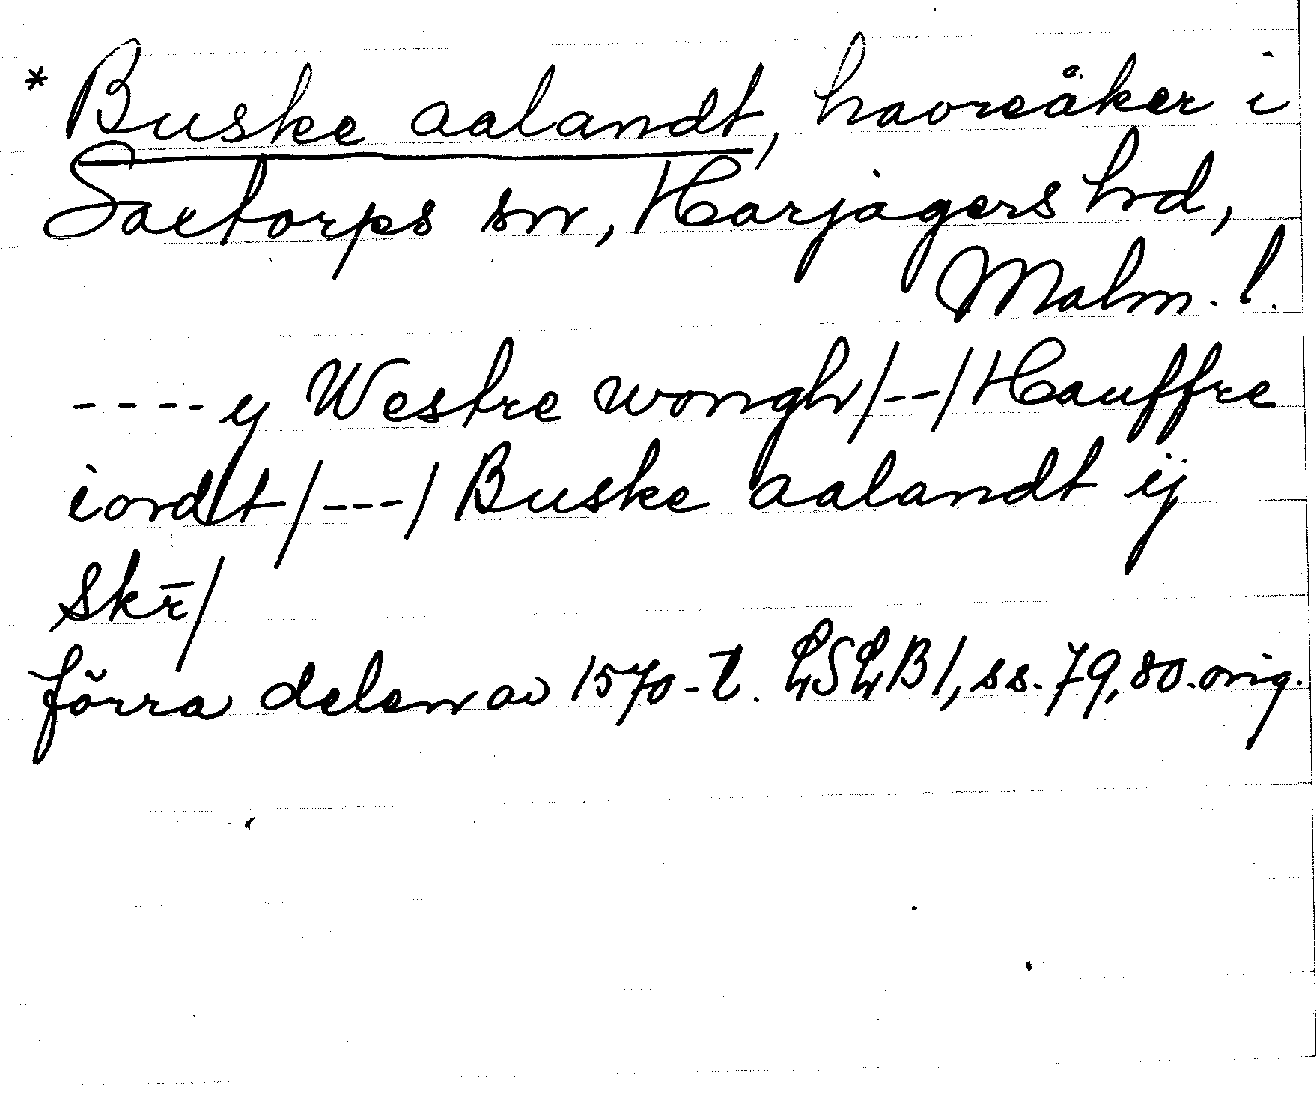 * Buske aalandt, havreåker i
Saxtorps sn, Harjagers hd,
Malm. l.
---- y Westre wongh/--/Hauffre
iordt/---/ Buske aalandt ij
Skr̄/
förra delen av 1570-t. LSLB1, ss. 79, 80. orig.